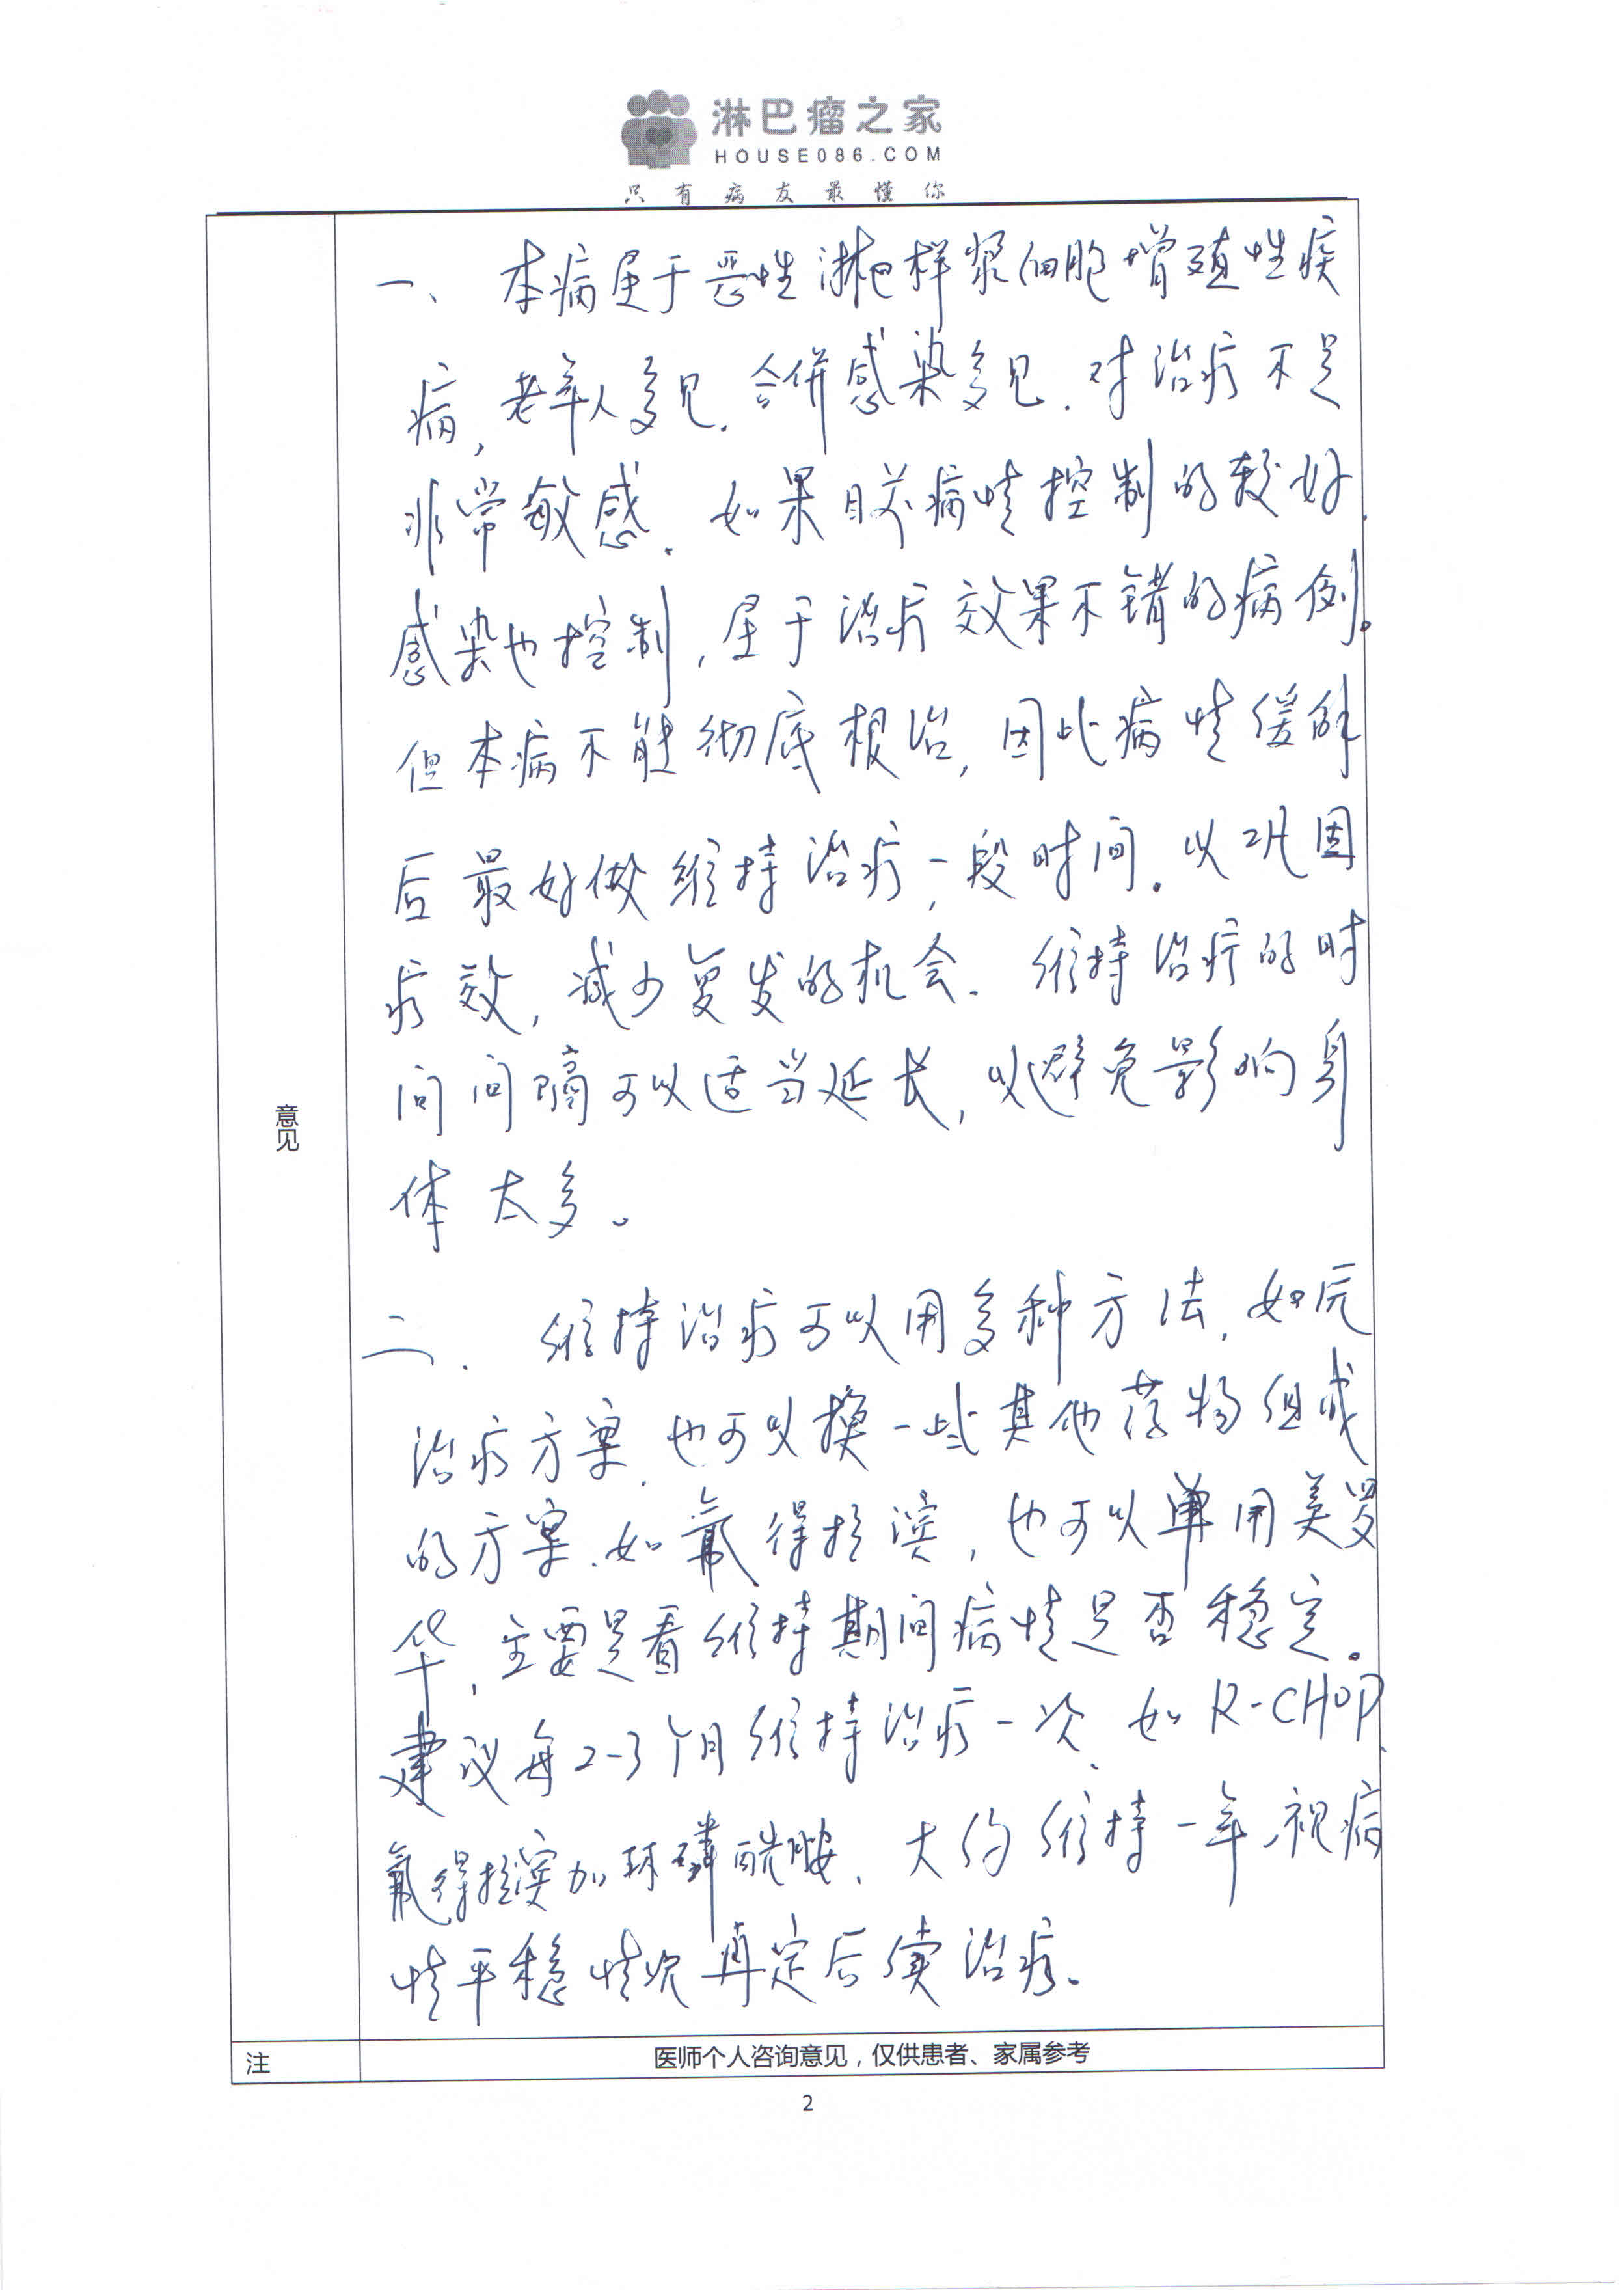 淋巴瘤之家
HOUSE086.COM
只有病友最懂你
一、本病属于恶性淋巴样浆细胞增殖性疾
病，老年人多见．合併感染多见．对治疗不是
非常敏感．如果目前病情控制的较好．
感染也控制，属于治疗效果不错的病例。
但本病不能彻底根治，因此病情缓解
后最好做维持治疗一段时间．以巩固
疗效，减少复发的机会．维持治疗的时
间间隔可以适当延长，以避免影响身
体太多。
二．维持治疗可以用多种方法，如原
治疗方案．也可以换一些其他药物组成
的方案．如氟得拉滨，也可以单用美罗
华，主要是看维持期间病情是否稳定。
建议每2-3个月维持治疗一次．如R-CHOP、
氟得拉滨加环磷酰胺．大约维持一年，视病
情平稳情况再定后续治疗。
意见
注
医师个人咨询意见，仅供患者、家属参考
2